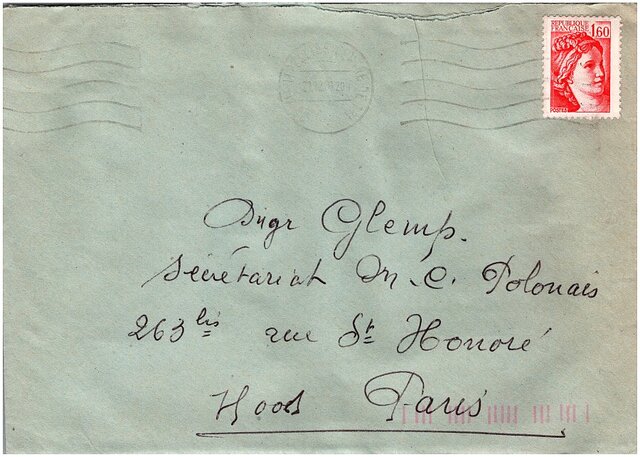 REPUBLIQUE
FRANÇAISE 1,60
Mgr Glemp.
Sécrétariat M. C. Polonais
263 bis rue St Honoré
75001 Paris